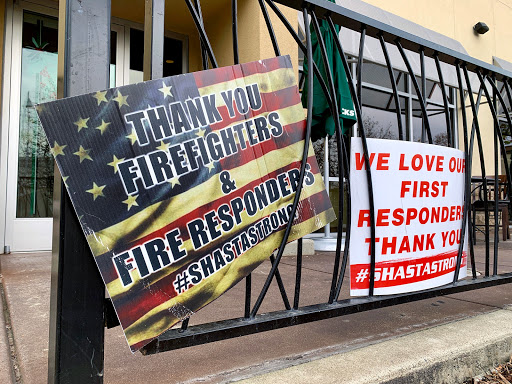 THANK YOU
FIREFIGHTERS
&
FIRE RESPONDERS
#SHASTASTRONG
WE LOVE OUR
FIRST
RESPONDERS
THANK YOU
#SHASTASTRONG